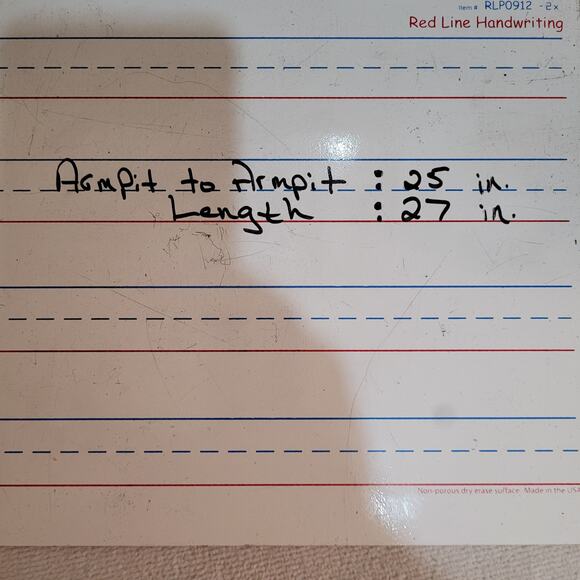 Item # RLP0912 - 2x
Red Line Handwriting
Armpit to Armpit : 25 in.
Length : 27 in.
Non-porous dry erase surface. Made in the USA